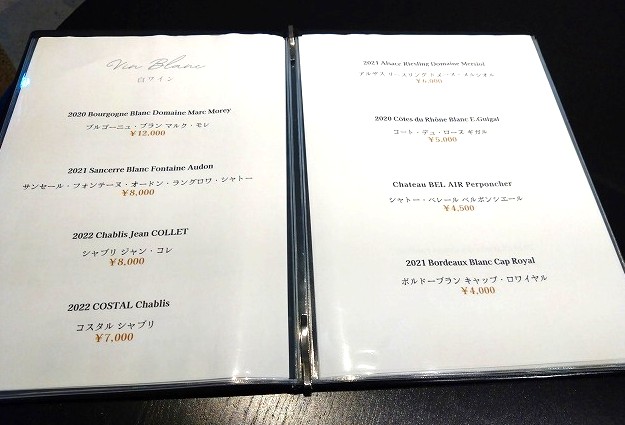 Vin Blanc
白ワイン
2020 Bourgogne Blanc Domaine Marc Morey
ブルゴーニュ・ブラン マルク・モレ
¥12,000
2021 Sancerre Blanc Fontaine Audon
サンセール・フォンテーヌ・オードン・ラングロワ・シャトー
¥8,000
2022 Chablis Jean COLLET
シャブリ ジャン・コレ
¥8,000
2022 COSTAL Chablis
コスタル シャブリ
¥7,000
2021 Alsace Riesling Domaine
アルザス リースリング ドメーヌ・
¥6,000
2020 Côtes du Rhône Blanc E.Guigal
コート・デュ・ローヌ ギガル
¥5,000
Chateau BEL AIR Perponcher
シャトー・ベレール ペルポンシエール
¥4,500
2021 Bordeaux Blanc Cap Royal
ボルドーブラン キャップ・ロワイヤル
¥4,000